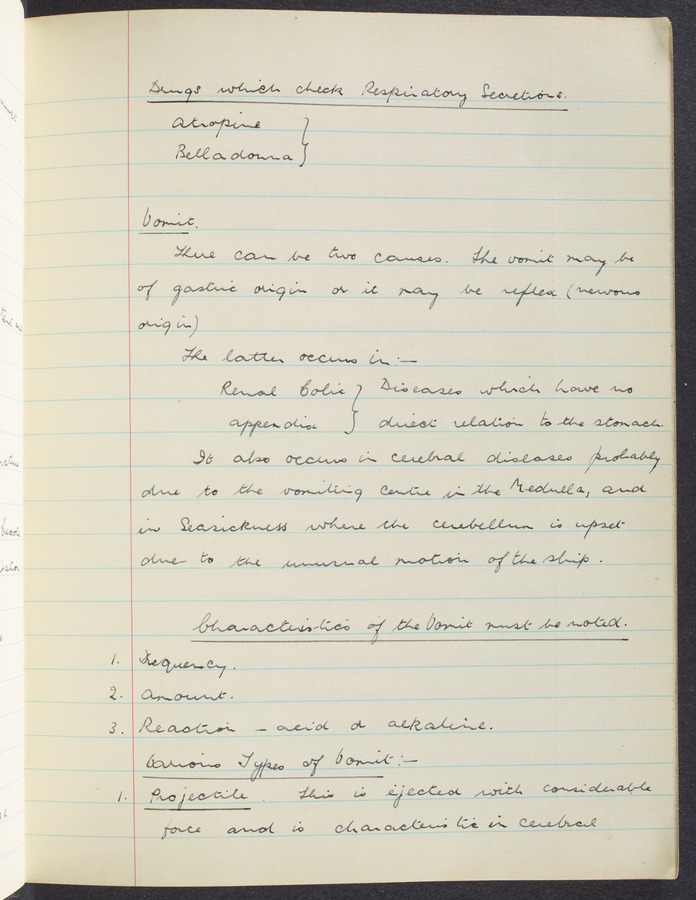 Drugs which check Respiratory Secretions.
Atropine }
Belladonna }
Vomit.
There can be two causes. The vomit may be
of gastric origin or it may be reflex (nervous
origin)
The latter occurs in :—
Renal Colic } Diseases which have no
appendix } direct relation to the stomach.
It also occurs in cerebral diseases probably
due to the vomiting centre in the Medulla, and
in Seasickness where the cerebellum is upset
due to the unusual motion of the ship.
Characteristics of the Vomit must be noted.
1. Frequency.
2. Amount.
3. Reaction – acid or alkaline.
Various Types of Vomit :—
1. Projectile. This is ejected with considerable
force and is characteristic in cerebral